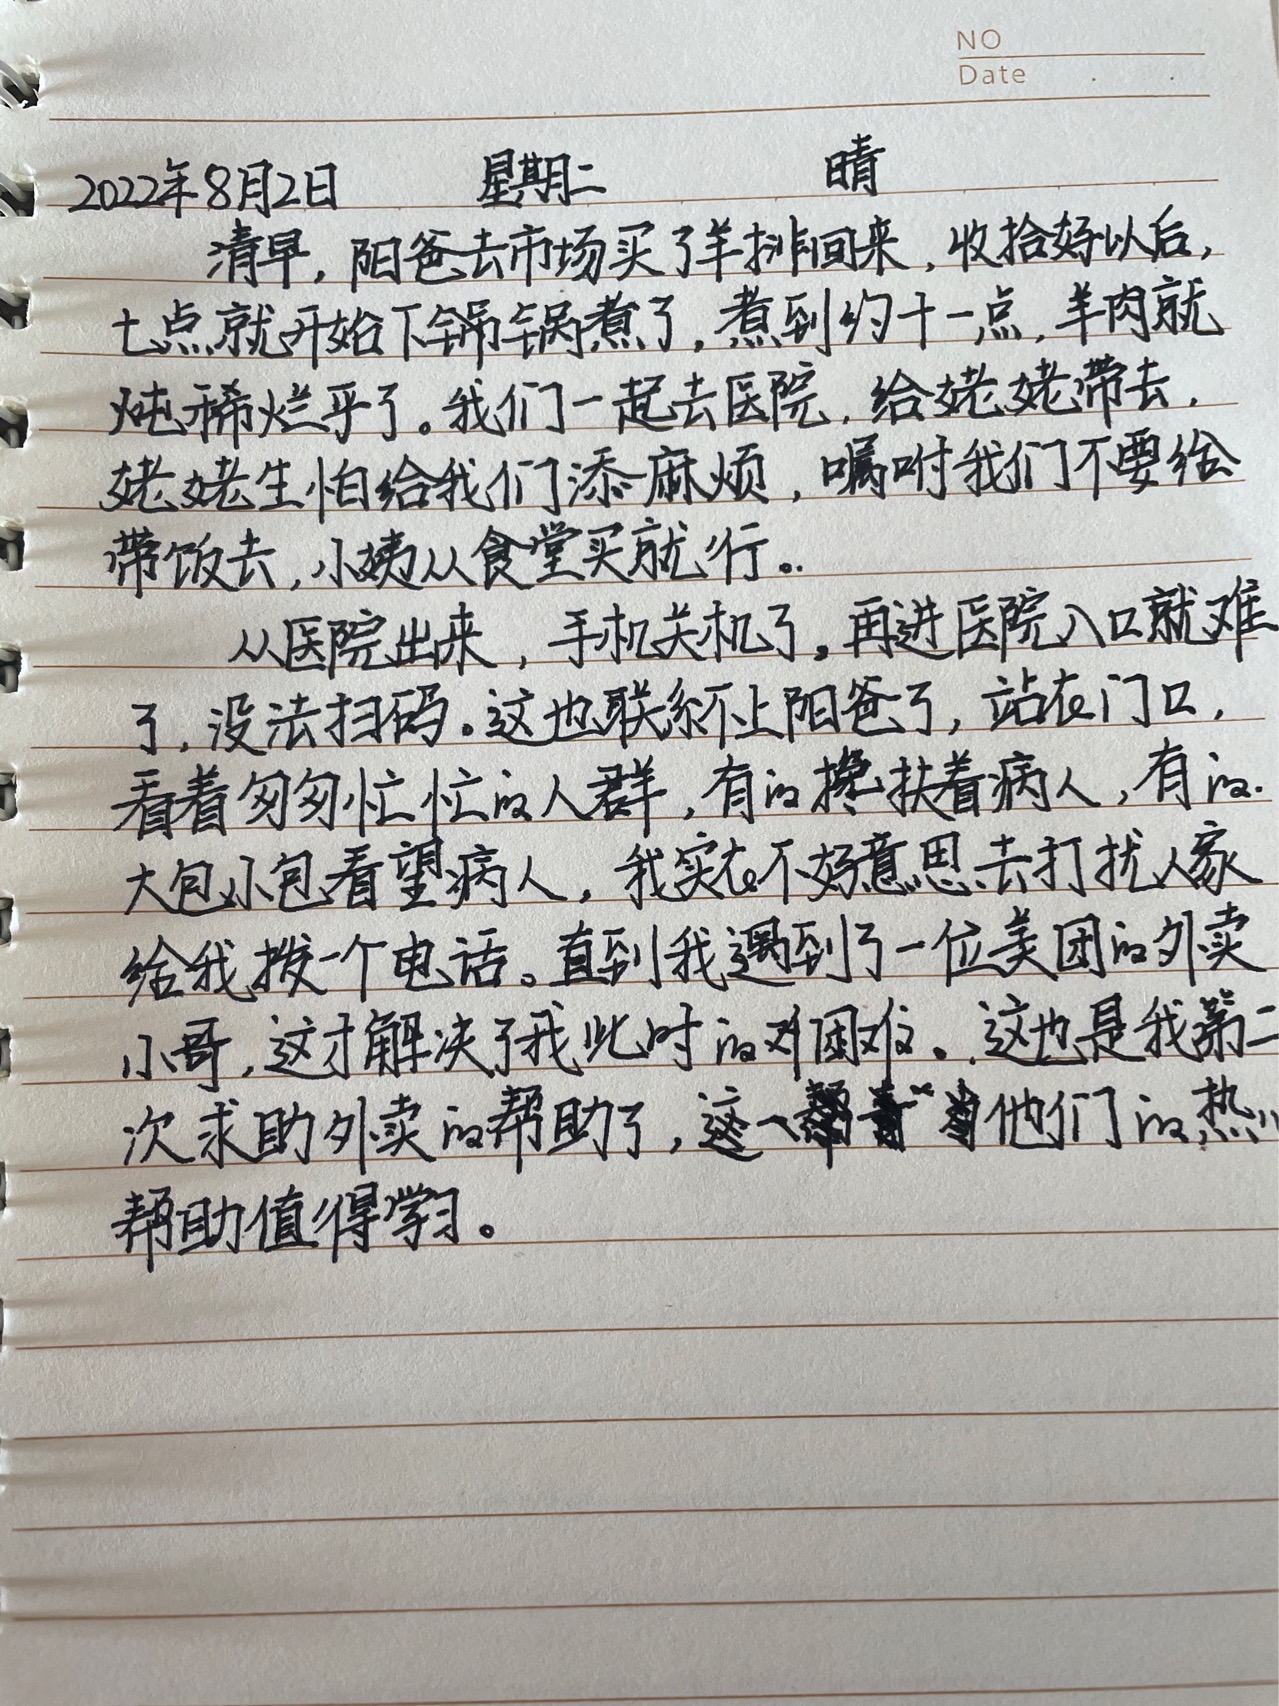 NO
Date
2022年8月2日 星期二 晴
清早，阳爸去市场买了羊排回来，收拾好以后，
七点就开始下锅锅煮了，煮到约十一点，羊肉就
炖稀烂乎了。我们一起去医院，给姥姥带去，
姥姥生怕给我们添麻烦，嘱咐我们不要给
带饭去，小姨从食堂买就行。
从医院出来，手机关机了。再进医院入口就难
了，没法扫码。这也联系不上阳爸了，站在门口，
看着匆匆忙忙的人群，有的搀扶着病人，有的
大包小包看望病人，我实在不好意思去打扰人家
给我拨一个电话。直到我遇到了一位美团的外卖
小哥，这才解决了我此时的困难。这也是我第二
次求助外卖的帮助了，这一他们的热心
帮助值得学习。